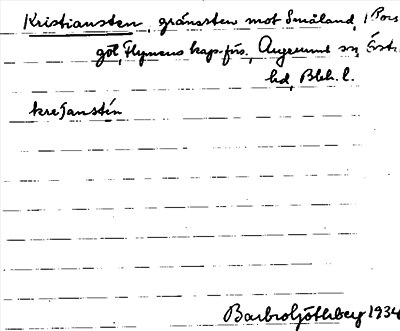 Kristiansten, gränssten mot Småland, Pors
göl, Flymens kap.förs, Augerum sn, Östra
hd, Blek. l.
krɛʃanstén
Barbro Göthberg 1934